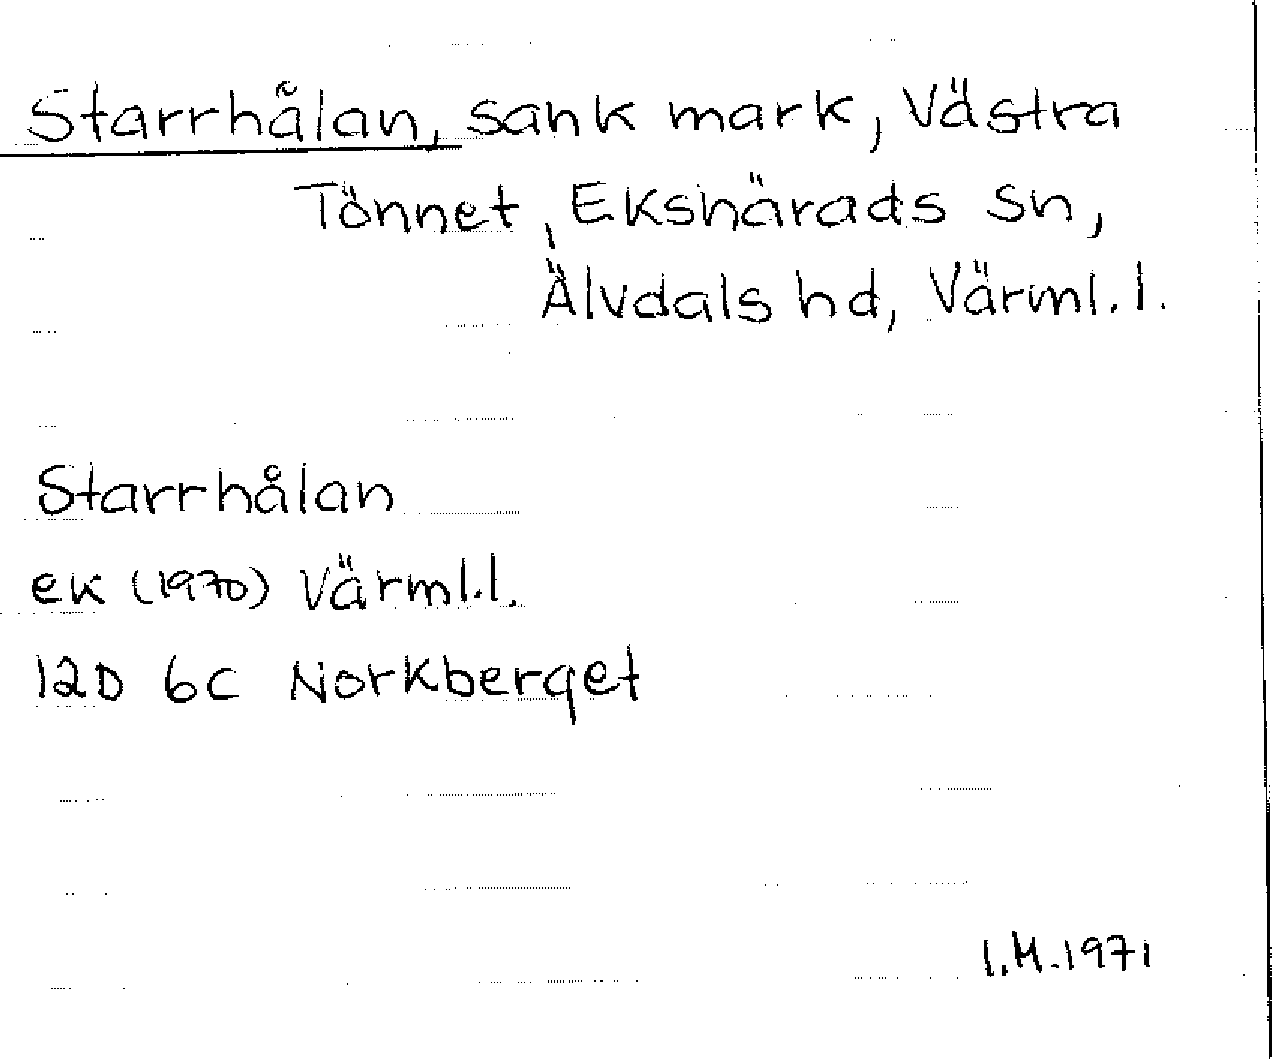 Starrhålan, sank mark, Västra
Tönnet, Ekshärads sn,
Älvdals hd, Värml. l.
Starrhålan
ek (1970) Värml.l.
12D 6C Norkberget
I.M.1971